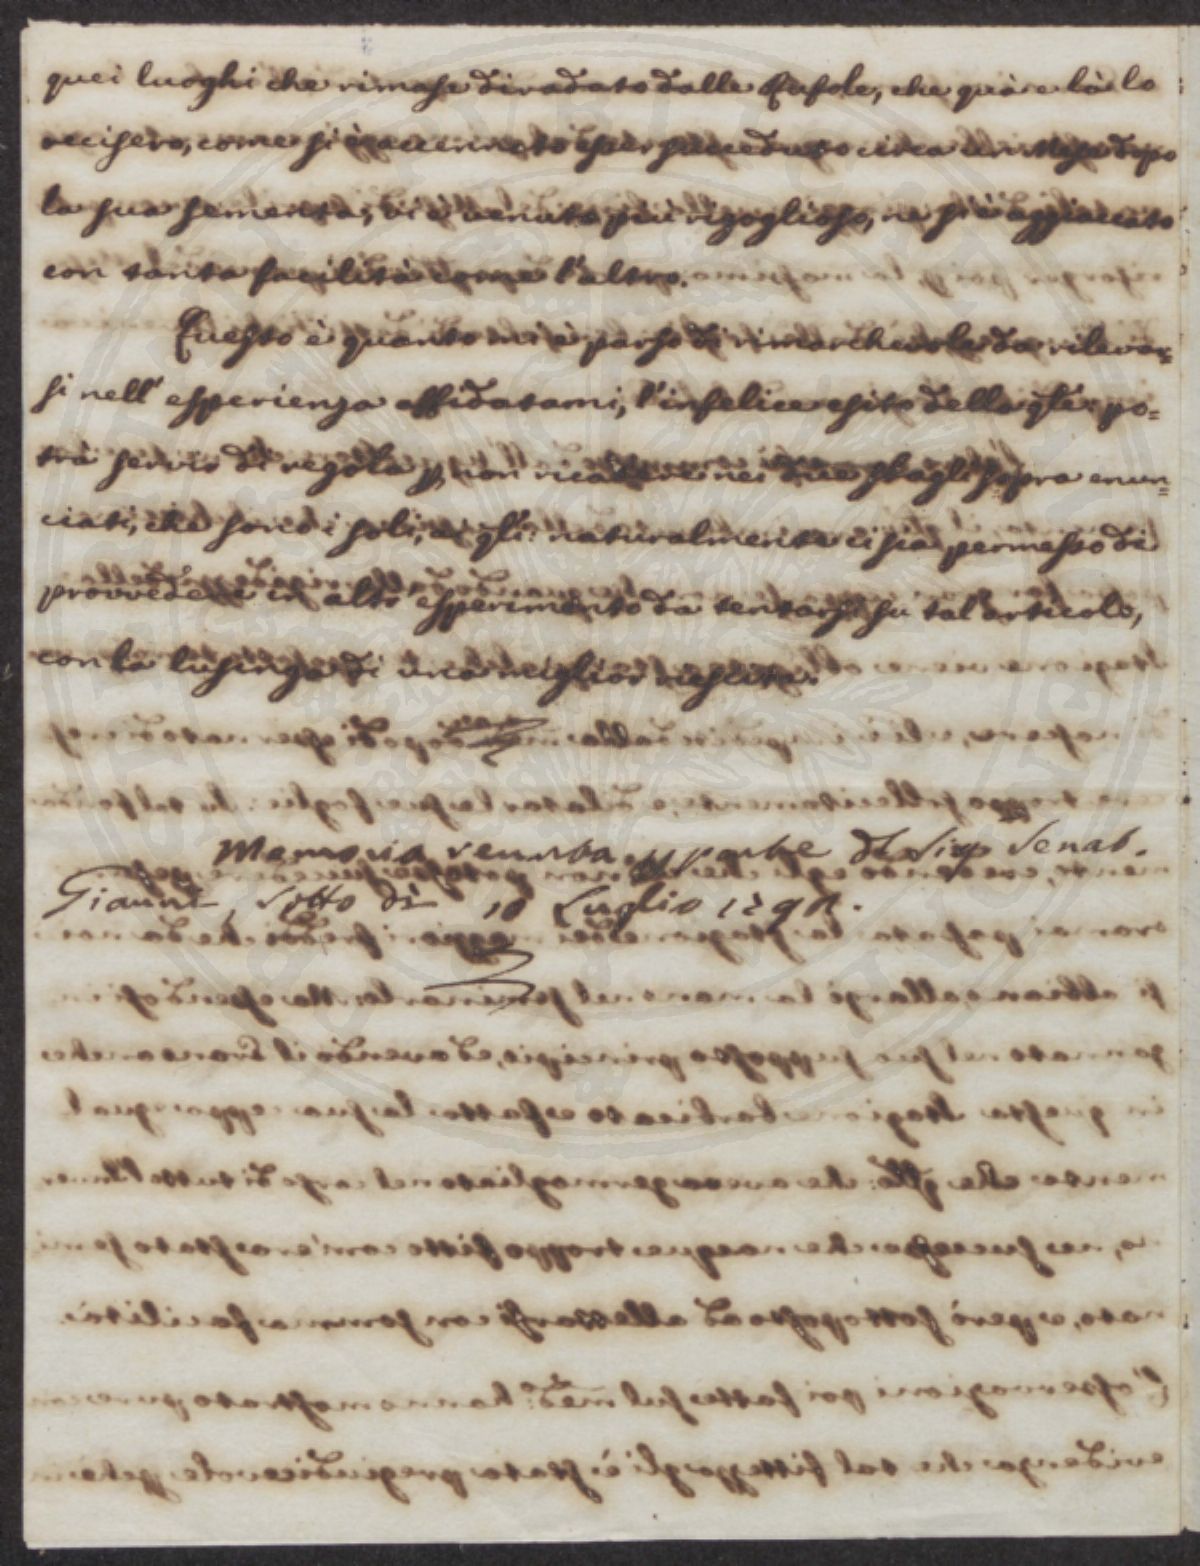 quei luoghi che rimase diradato dalle Zufole, che quà e là lo
recisero, come si è accennato esser succeduto circa un Mese dopo
la sua sementa, vi è venuto più rigoglioso, ne si è aggiaccato
con tanta facilità come l'altro.
Questo è quanto mi è parso di rimarchevole da rilevar=
si nell' esperienza affidatami, l'infelice esito della qle: po=
trà servir di regola p non ricadere nei due sbagli sopra enun=
ciati, che sono i soli, ai qli: naturalmente ci sia permesso di
provvedere in altro esperimento da tentarsi su tal'articolo,
con la lusinga di una miglior riescita.
Memoria venuta p parte del Sigr Senat.
Gianni, sotto dì 10 Luglio